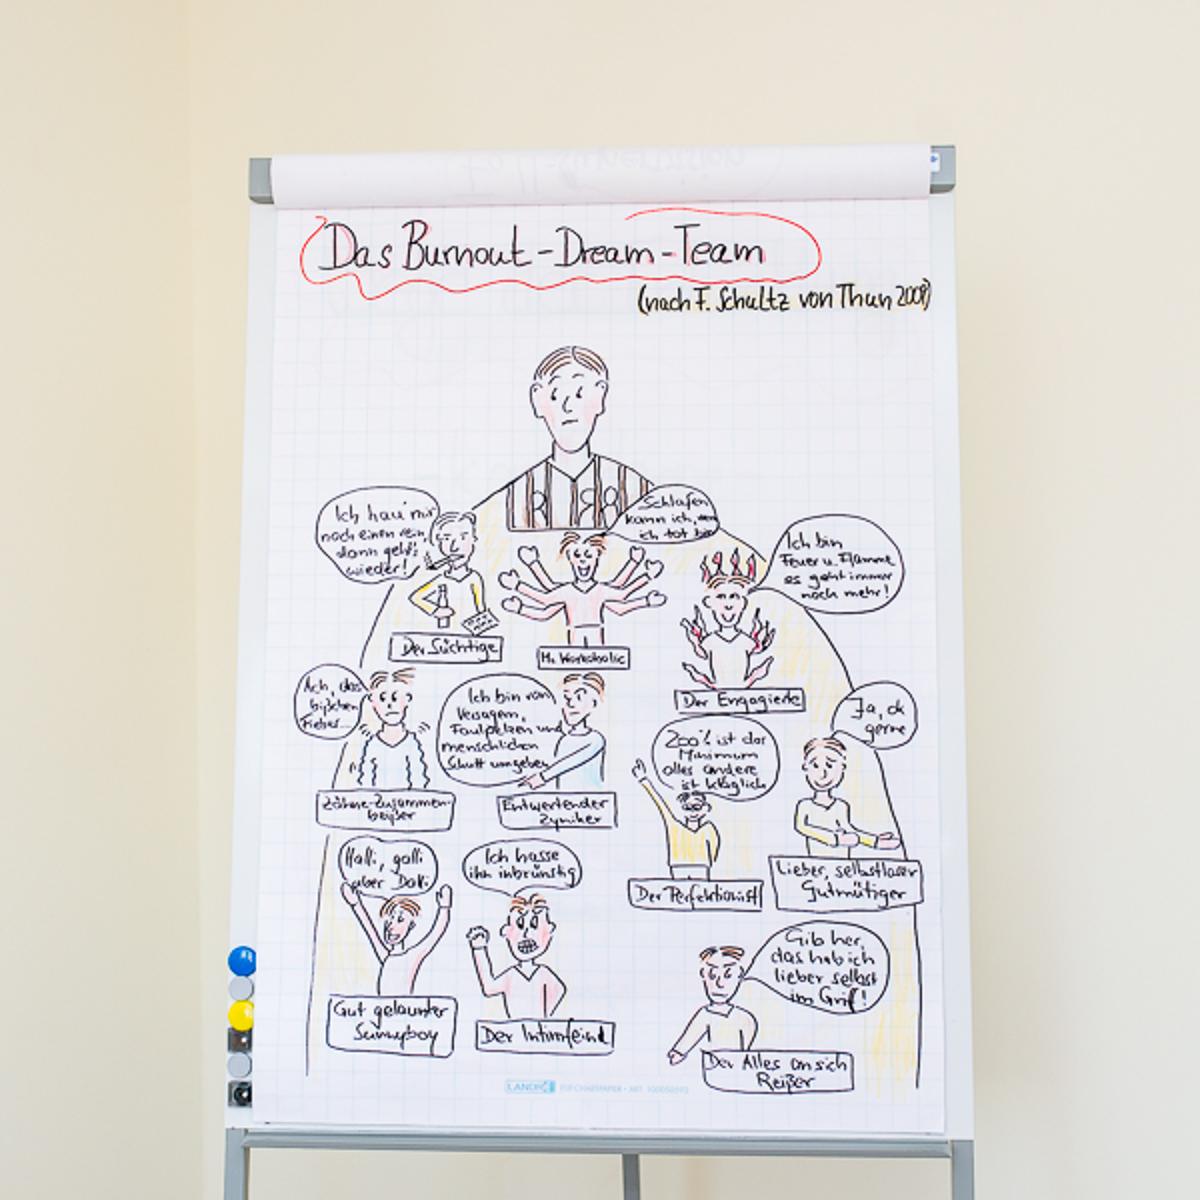 Das Burnout-Dream-Team
(nach F. Schultz von Thun 2008)
Ich hau' mir
noch einen rein,
dann geht's
wieder!
Der Süchtige
Schlafen
kann ich, wenn
ich tot bin
Mr. Workoholic
Ich bin
Feuer u. Flamme
es geht immer
noch mehr!
Der Engagierte
Ach, das
bißchen
Fieber...
Zähne-Zusammen-
beißer
Ich bin von
Versagern,
Faulpelzen und
menschlichen
Schutt umgeben
Entwertender
Zyniker
200% ist das
Minimum
alles andere
ist kläglich
Der Perfektionist
Ja, ok
gerne
Lieber, selbstloser
Gutmütiger
Halli, galli
aber Dalli
Gut gelaunter
Sunnyboy
Ich hasse
ihn inbrünstig
Der Intimfeind
Gib her,
das hab ich
lieber selbst
im Griff!
Der Alles an sich
Reißer
LANDRÉ